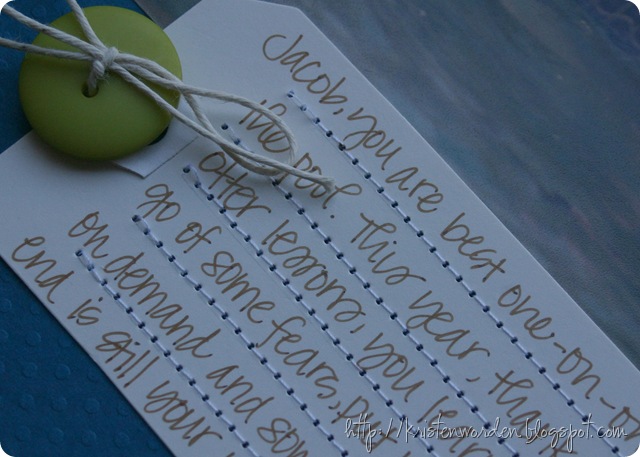 Jacob, you are best one-on-o
the pool. This year, tha
offer lessons, you lear
go of some fears,
on demand and som
end is still your
http://kristenworden.blogspot.com